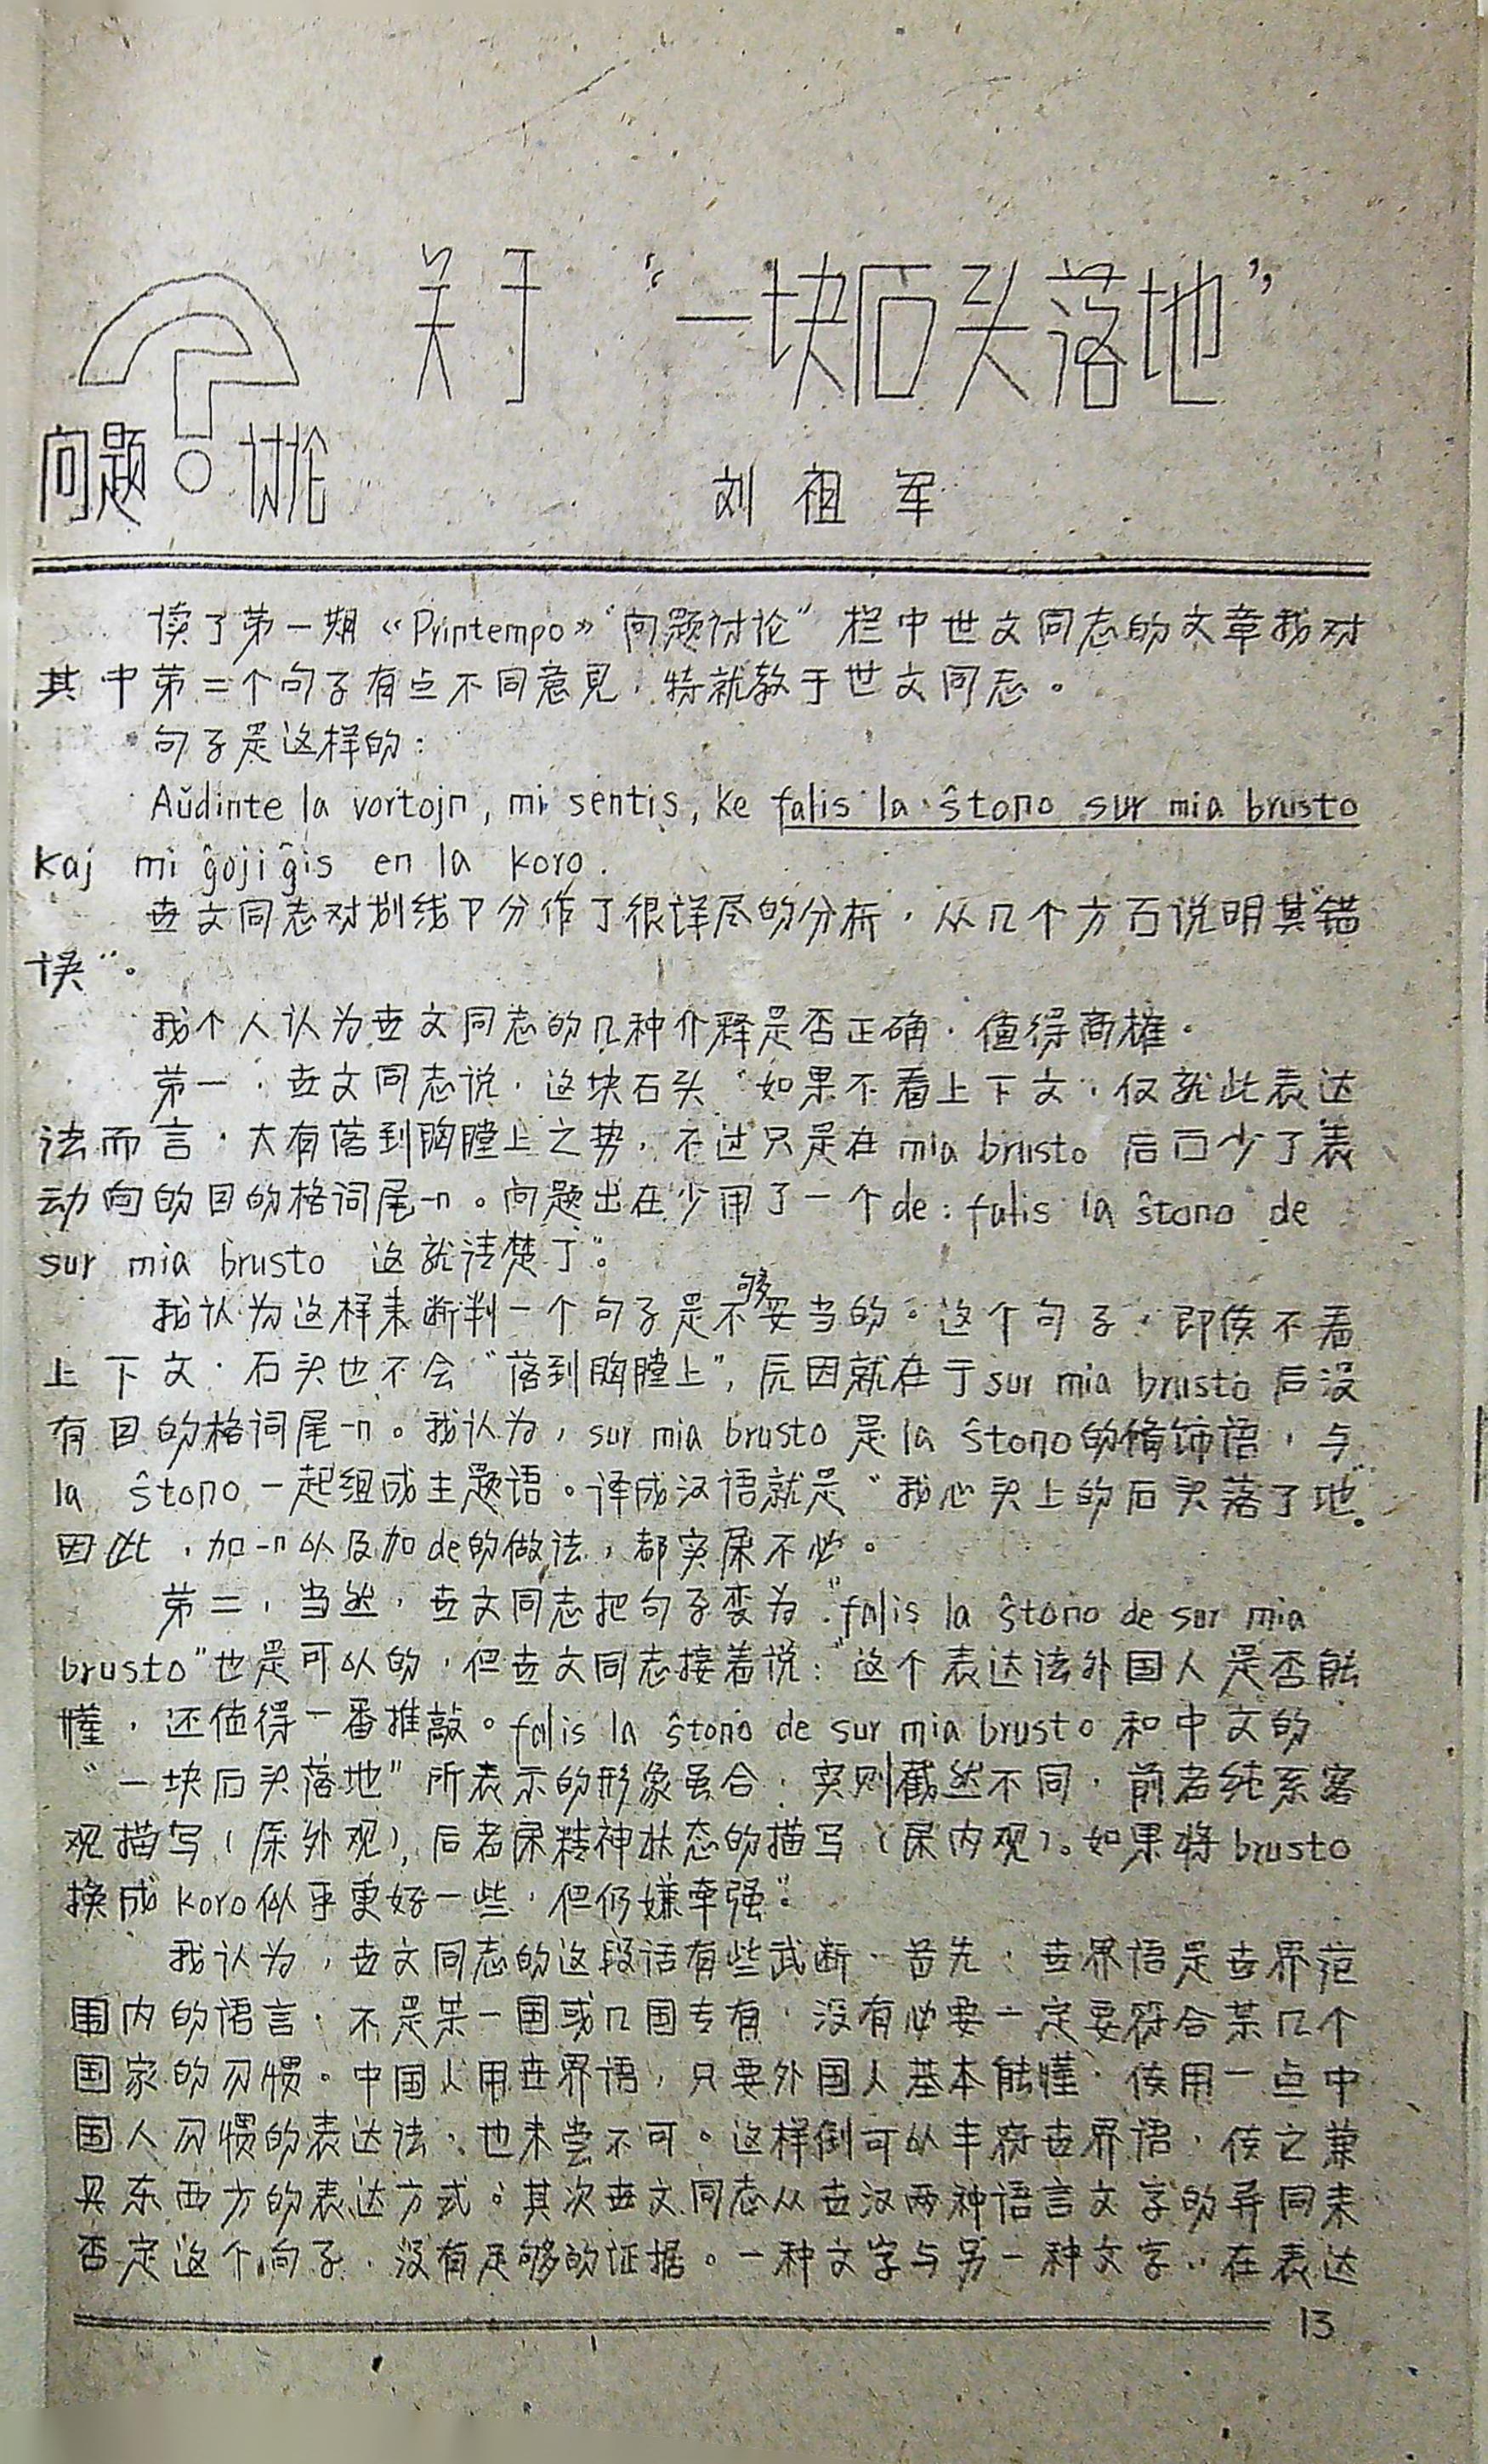 关于“一块石头落地”
问题讨论
刘祖军
读了第一期《Printempo》“问题讨论”栏中世文同志的文章我对
其中第二个句子有点不同意见，特就教于世文同志。
句子是这样的：
Aŭdinte la vortojn, mi sentis, ke falis la ŝtono sur mia brusto
kaj mi ĝojiĝis en la koro.
世文同志对划线下分作了很详尽的分析，从几个方面说明其“错
误”。
我个人认为世文同志的几种介释是否正确，值得商榷。
第一，世文同志说，这块石头“如果不看上下文，仅就此表达
法而言，大有落到胸膛上之势，不过只是在 mia brusto 后面少了表
动向的目的格词尾-n。问题出在少用了一个de: falis la ŝtono de
sur mia brusto 这就清楚了”。
我认为这样来断判一个句子是不够妥当的。这个句子，即使不看
上下文，石头也不会“落到胸膛上”，原因就在于 sur mia brusto 后没
有目的格词尾-n。我认为，sur mia brusto 是 la ŝtono的修饰语，与
la ŝtono 一起组成主题语。译成汉语就是“我心头上的石头落了地”。
因此，加-n以及加de的做法，都实属不必。
第二，当然，世文同志把句子变为“falis la ŝtono de sur mia
brusto”也是可以的，但世文同志接着说：“这个表达法外国人是否能
懂，还值得一番推敲。falis la ŝtono de sur mia brusto 和中文的
“一块石头落地”所表示的形象虽合，实则截然不同，前者纯系客
观描写（属外观），后者属精神状态的描写（属内观）。如果将 brusto
换成 koro 似乎更好一些，但仍嫌牵强”。
我认为，世文同志的这段话有些武断，首先，世界语是世界范
围内的语言，不是某一国或几国专有，没有必要一定要符合某几个
国家的习惯。中国人用世界语，只要外国人基本能懂，使用一点中
国人习惯的表达法，也未尝不可。这样倒可以丰富世界语，使之兼
具东西方的表达方式。其次世文同志从世汉两种语言文字的异同来
否定这个句子，没有足够的证据。一种文字与另一种文字，在表达
13